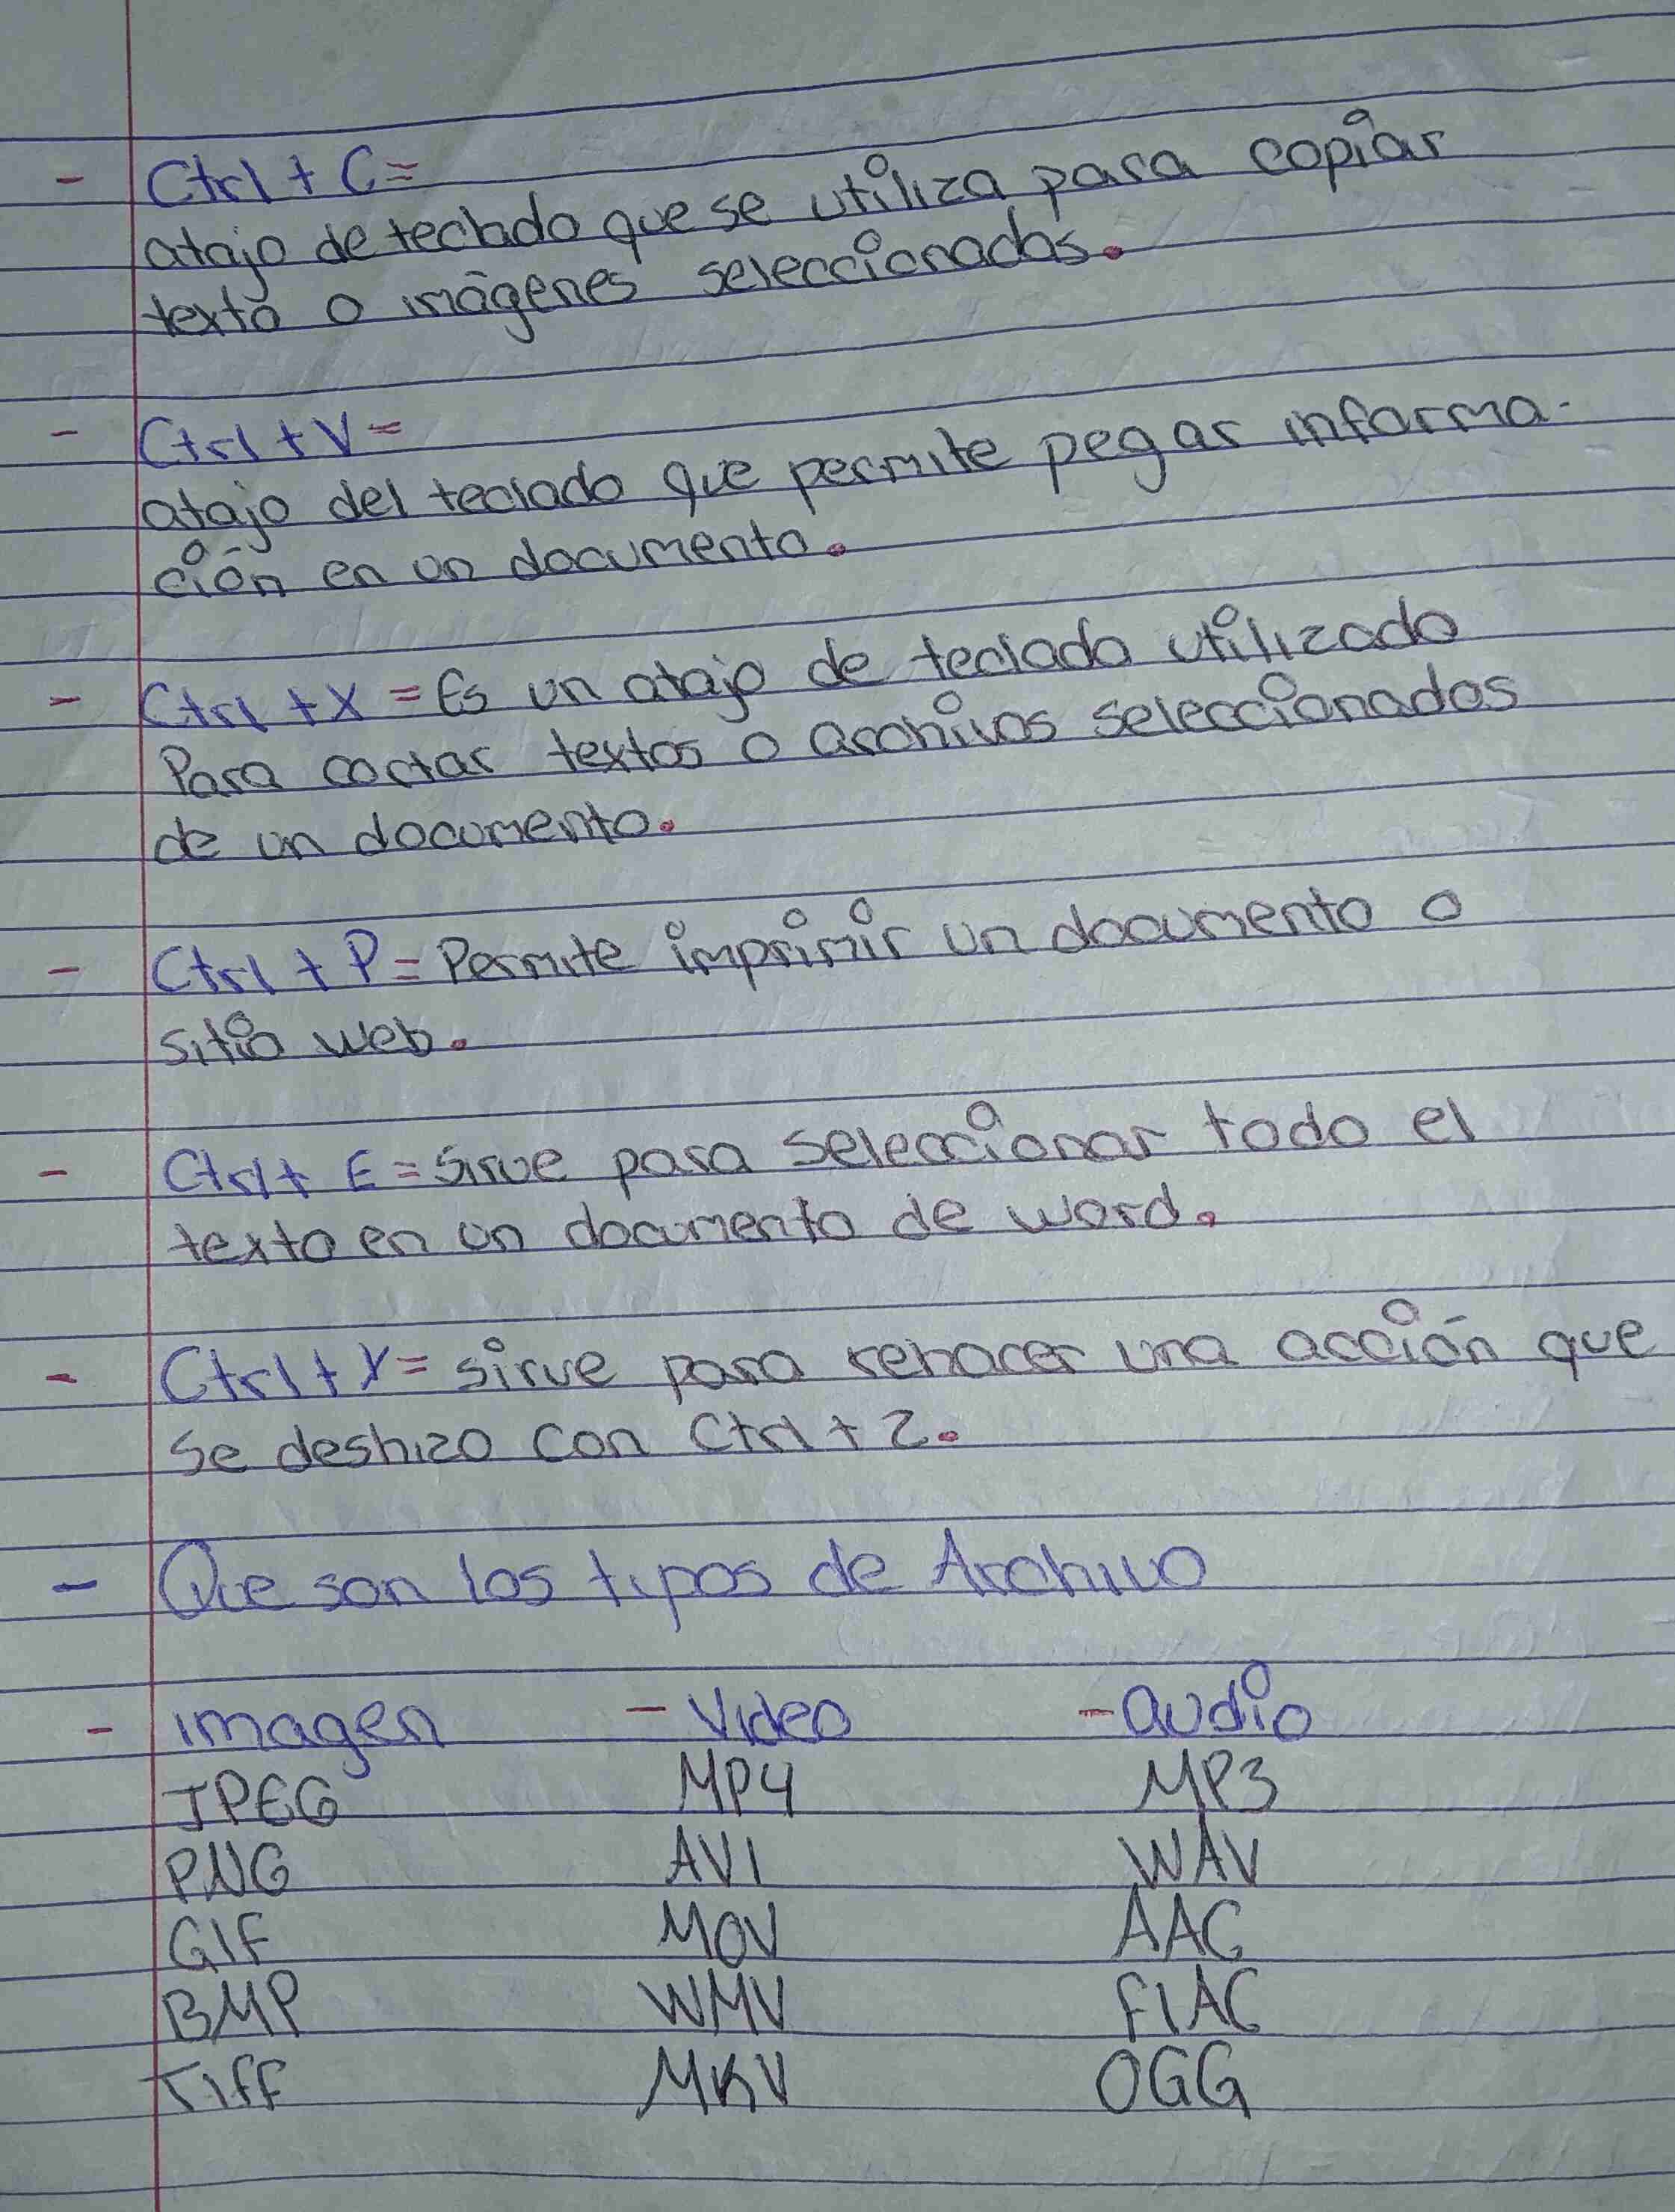 - Ctrl + C =
atajo de teclado que se utiliza para copiar
texto o imágenes seleccionados.
- Ctrl + V =
atajo del teclado que permite pegar informa-
ción en un documento.
- Ctrl + X = Es un atajo de teclado utilizado
Para cortar textos o archivos seleccionados
de un documento.
- Ctrl + P = Permite imprimir un documento o
sitio web.
- Ctrl + E = Sirve para seleccionar todo el
texto en un documento de word.
- Ctrl + Y = sirve para rehacer una acción que
se deshizo con Ctrl + Z.
- Que son los tipos de Archivo
- imagen - Video - audio
JPEG MP4 MP3
PNG AVI WAV
GIF MOV AAC
BMP WMV FlAC
Tiff MKV OGG